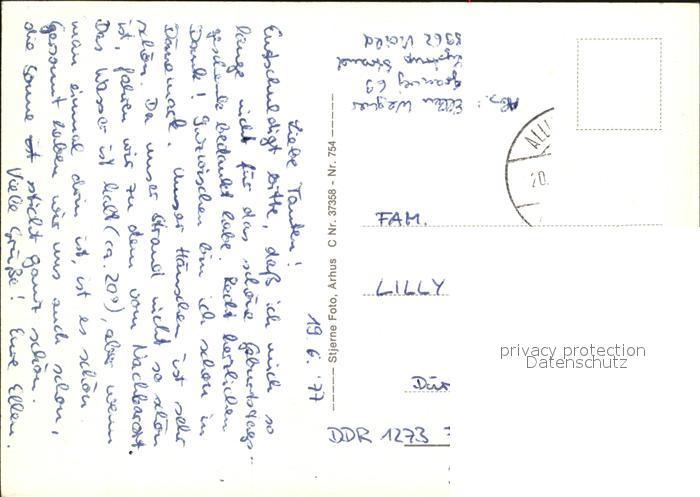 19.6.'77
Liebe Tanten!
Entschuldigt bitte, daß ich mich so
lange nicht für das schöne Geburtstags-
geschenk bedankt habe. Recht herzlichen
Dank! Inzwischen bin ich schon in
Dänemark. Unser Häuschen ist sehr
schön. Da unser Strand nicht so schön
ist, fahren wir zu dem vom Nachbarort.
Das Wasser ist kalt (ca. 20°), aber wenn
man einmal drin ist, ist es schön.
Gesonnt haben wir uns auch schon,
die Sonne sticht ganz schön.
Viele Grüße! Eure Ellen.
Stjerne Foto, Arhus C Nr. 37358 - Nr. 754
Abs.: Ellen Wegner
69
Strand
ALLI
20.
FAM.
LILLY
DDR 1273
privacy protection
Datenschutz